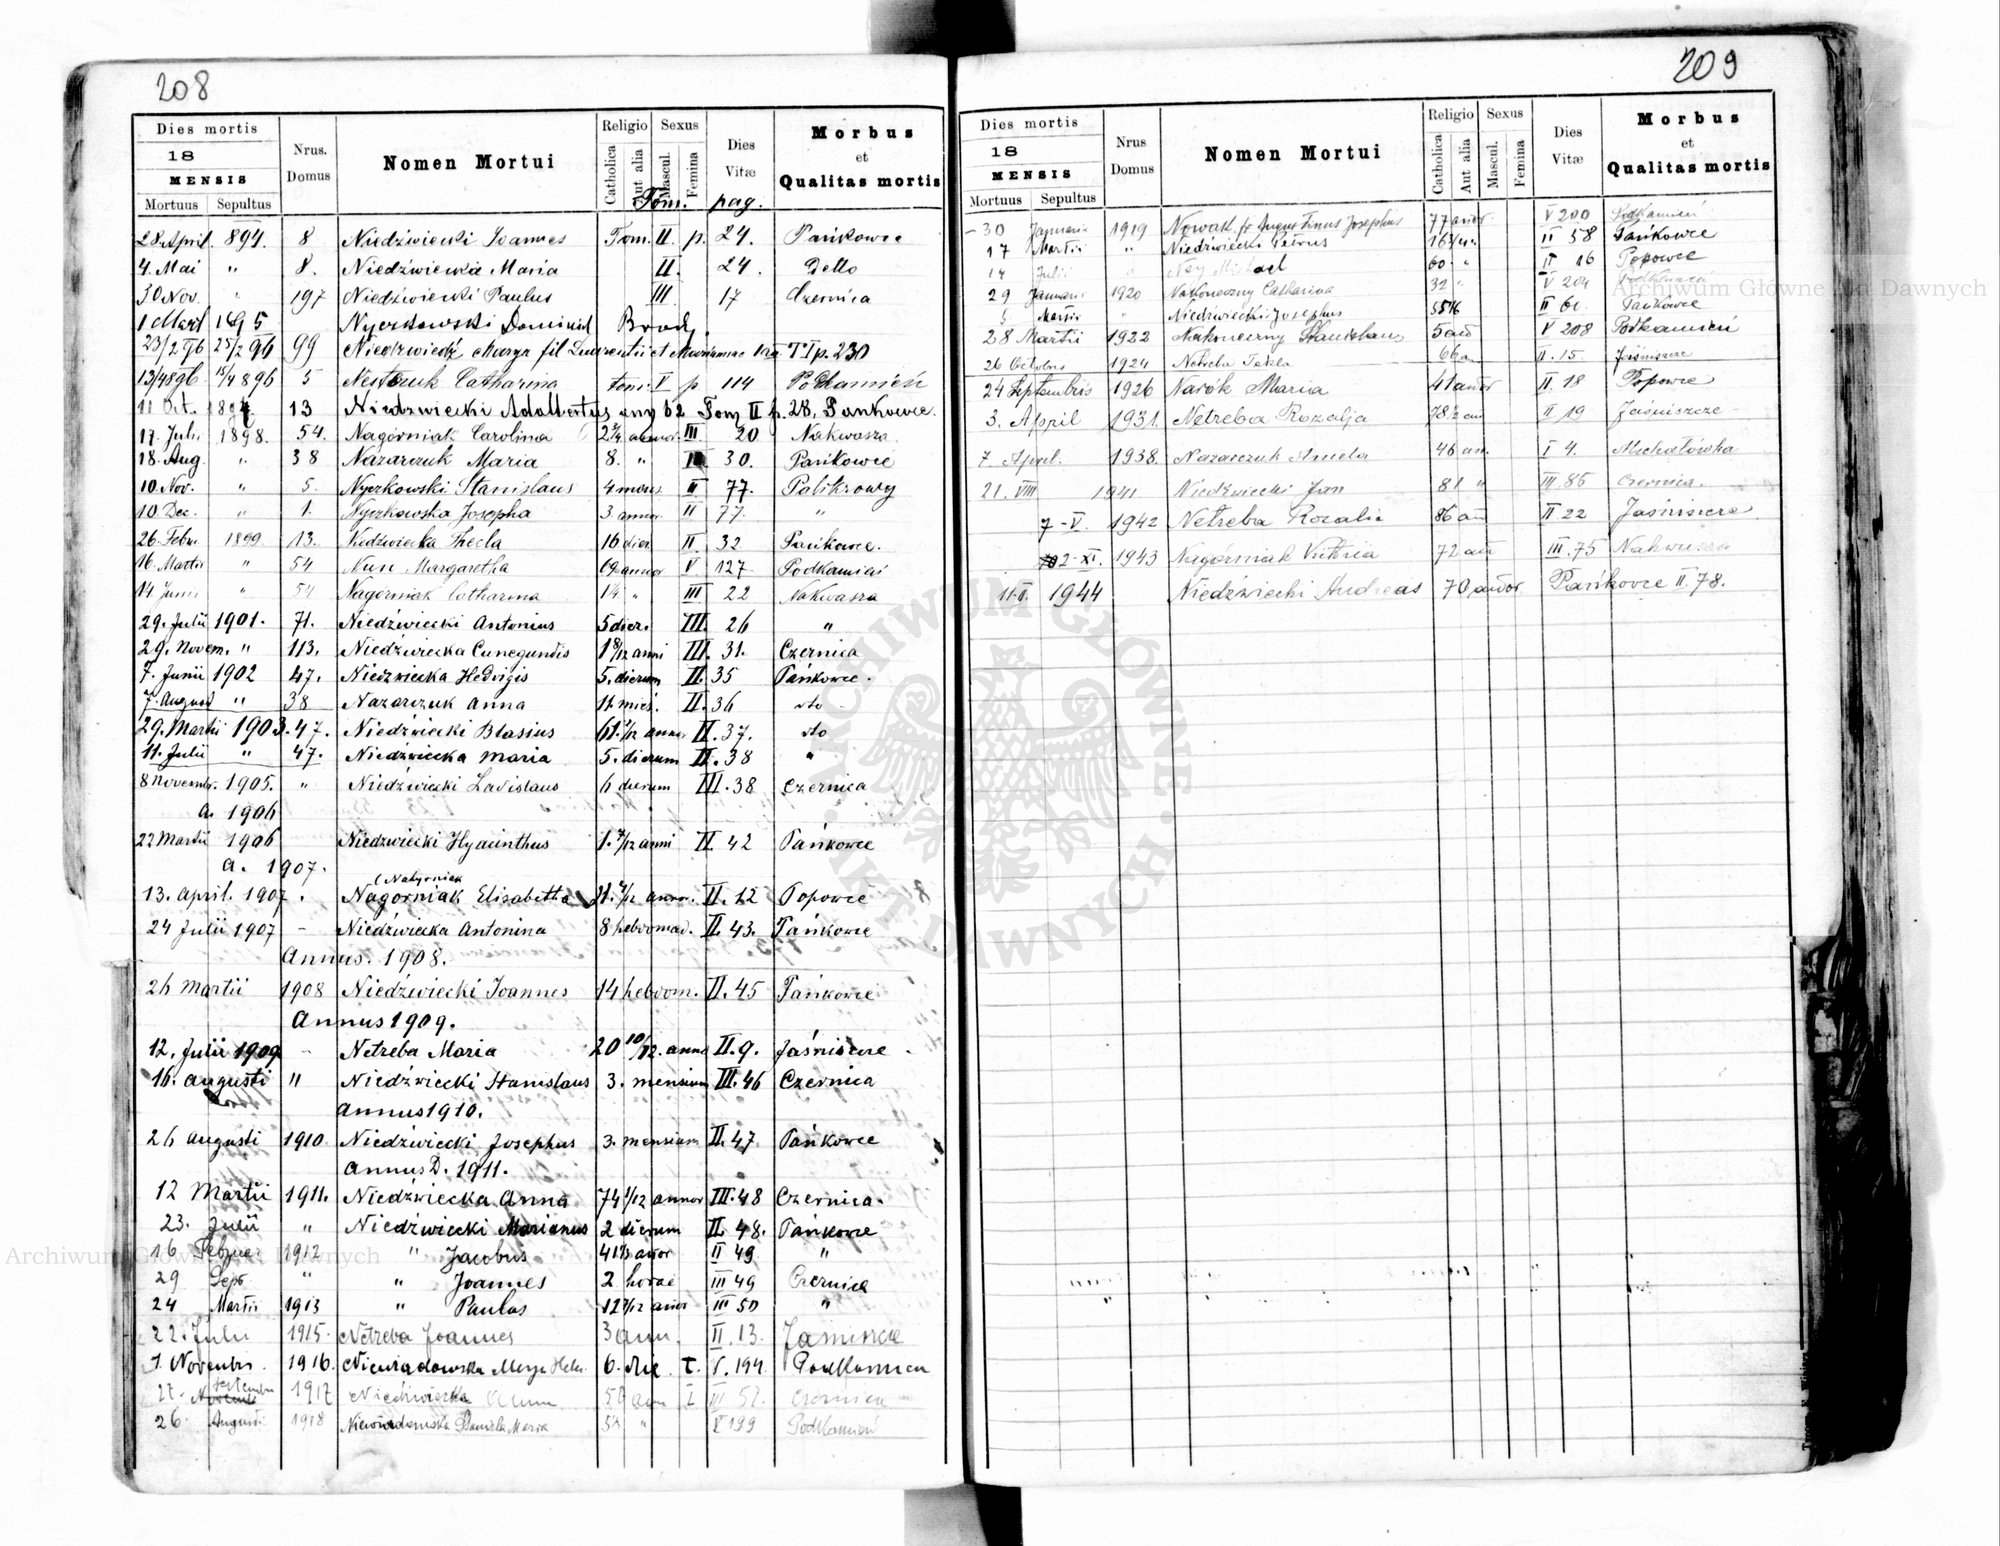 208
Dies mortis
18
MENSIS
Mortuus Sepultus
Nrus. Domus
Nomen Mortui
Religio
Catholica
Aut alia
Sexus
Mascul.
Femina
Dies Vitæ
Morbus et Qualitas mortis
Tom. pag.
28 April. 894. 8 Niedźwiecki Joannes Tom. II p. 24. Pańkowce
4. Mai " 8. Niedźwiecka Maria II. 24. Detto
30 Nov. " 197 Niedźwiecki Paulus III 17 Czernica
1 Mart 1895 Nyczkowski Dominik Brody.
23/2 96 25/2 96 99 Niedzwiedź Marya fil Laurentii et Marianae T I p. 230
13/4 896 15/4 896 5 Nestoruk Catharina tom. V p 114 Podkamień
11 Oct. 1897. 13 Niedzwiecki Adalbertus any 62 Tom II p. 28, Pankowce.
17. Juli. 1898. 54. Nagórniak Carolina annor. III 20 Nakwasza
18. Aug. " 38 Nazarczuk Maria 8. " II 30. Pańkowce
10. Nov. " 5. Nyczkowski Stanislaus 4 mens II 77. Palikrowy
10. Dec. " 1. Nyczkowska Josepha 3 annor. II 77. "
26. Febr. 1899 13. Niedźwiecka Thecla 16 dier II 32 Pańkowce.
16. Martii " 54 Nun Margaretha 69 annor V 127 Podkamień
14 Junii " 54 Nagórniak Catharina 14 " III 22 Nakwasza
29. Julii 1901. 71. Niedźwiecki Antonius 5 dier. III. 26 "
29. Novem. " 113. Niedźwiecka Cunegundis 1 8/12 anni III. 31. Czernica
7. Junii 1902 47. Niedźwiecka Hedvigis 5. dierum II. 35 Pańkowce.
7. August " 38 Nazarczuk Anna 11 mies. II. 36 dto
29. Martii 1903. 47. Niedźwiecki Blasius annor II. 37. dto
11. Julii " 47. Niedźwiecka Maria 5. dierum II. 38 "
8 Novembr. 1905. " Niedźwiecki Ladislaus 6 dierum III. 38 Czernica
A. 1906
22 Martii 1906 Niedźwiecki Hyacinthus 1. 7/12 anni II 42 Pańkowce
A. 1907.
(Natyrniak
13. April. 1907. Nagórniak Elisabetha annor. II. 12 Popowce
24 Julii 1907 - Niedźwiecka Antonina 8 hebdomad. II. 43. Pańkowce
Annus. 1908.
26 Martii 1908 Niedźwiecki Joannes 14 hebdom. II. 45 Pańkowce
Annus 1909.
12. Julii 1909 - Netreba Maria 20 10/12. anno II. 9. Jaśniszcze
16. Augusti " Niedźwiecki Stanislaus 3. mensium III. 46 Czernica
Annus 1910.
26 Augusti 1910 Niedźwiecki Josephus 3. mensium II. 47. Pańkowce
Annus D. 1911.
12 Martii 1911. Niedźwiecka Anna 74 1/12 annor III. 48 Czernica.
23. Julii " Niedźwiecki Marianus 2 dierum II. 48. Pańkowce
16 Februar 1912 " Jacobus annor II 49 "
29 Sept " " Joannes 2 horae III 49 Czernica
24 Martii 1913 " Paulus 12 7/12 annor III 50 "
22. Julii 1915. Netreba Joannes 3 ann. II. 13. Jasniszcze
1 Novembris. 1916. Niewiadowska Marya Helen. 6. die T. V. 194. Podkamien
27. Septembris 1917 Niedźwiecka Anna T III 52. Czernica
26. Augusti 1918 Niewiadomska Stanisla Maria V 199 Podkamień
209
Dies mortis
18
MENSIS
Mortuus Sepultus
Nrus Domus
Nomen Mortui
Religio
Catholica
Aut alia
Sexus
Mascul.
Femina
Dies Vitæ
Morbus et Qualitas mortis
30 Januarii 1919 Nowak fr Augustinus Josephus 77 annor V 200 Podkamień
17 Martii " Niedźwiecki Petrus II 58 Pańkowce
14 Julii " Ney Michael 60 " II 16 Popowce
29 Januarii 1920 Nakoneczny Catharina 32 " V 204 Podkamień
5 Martii " Niedźwiecki Josephus II 60 Pańkowce
28 Martii 1922 Nakoneczny Stanislaus 5 an V 208 Podkamień
26 Octobris 1924 Netreba Tekla 66 an II. 15. Jaśniszcze
24 Septembris 1926 Narók Maria 41 annor II. 18 Popowce
3. April 1931. Netreba Rozalja 78 1/2 an II 19 Jaśniszcze -
7 April. 1938. Nazarczuk Aniela 46 an. I 4. Michałówka
21. VIII 1941 Niedźwiecki Jan 81 " III. 86 Czernica.
7 - V. 1942 Netreba Rozalia 86 an II 22 Jaśniszcze
2 - XI. 1943 Nagórniak Viktria 72 an III. 75 Nakwasza
11. II. 1944 Niedźwiecki Andreas 70 annor Pańkowce II. 78.
Archiwum Główne Akt Dawnych
Archiwum Główne Akt Dawnych
ARCHIWUM GŁÓWNE AKT DAWNYCH